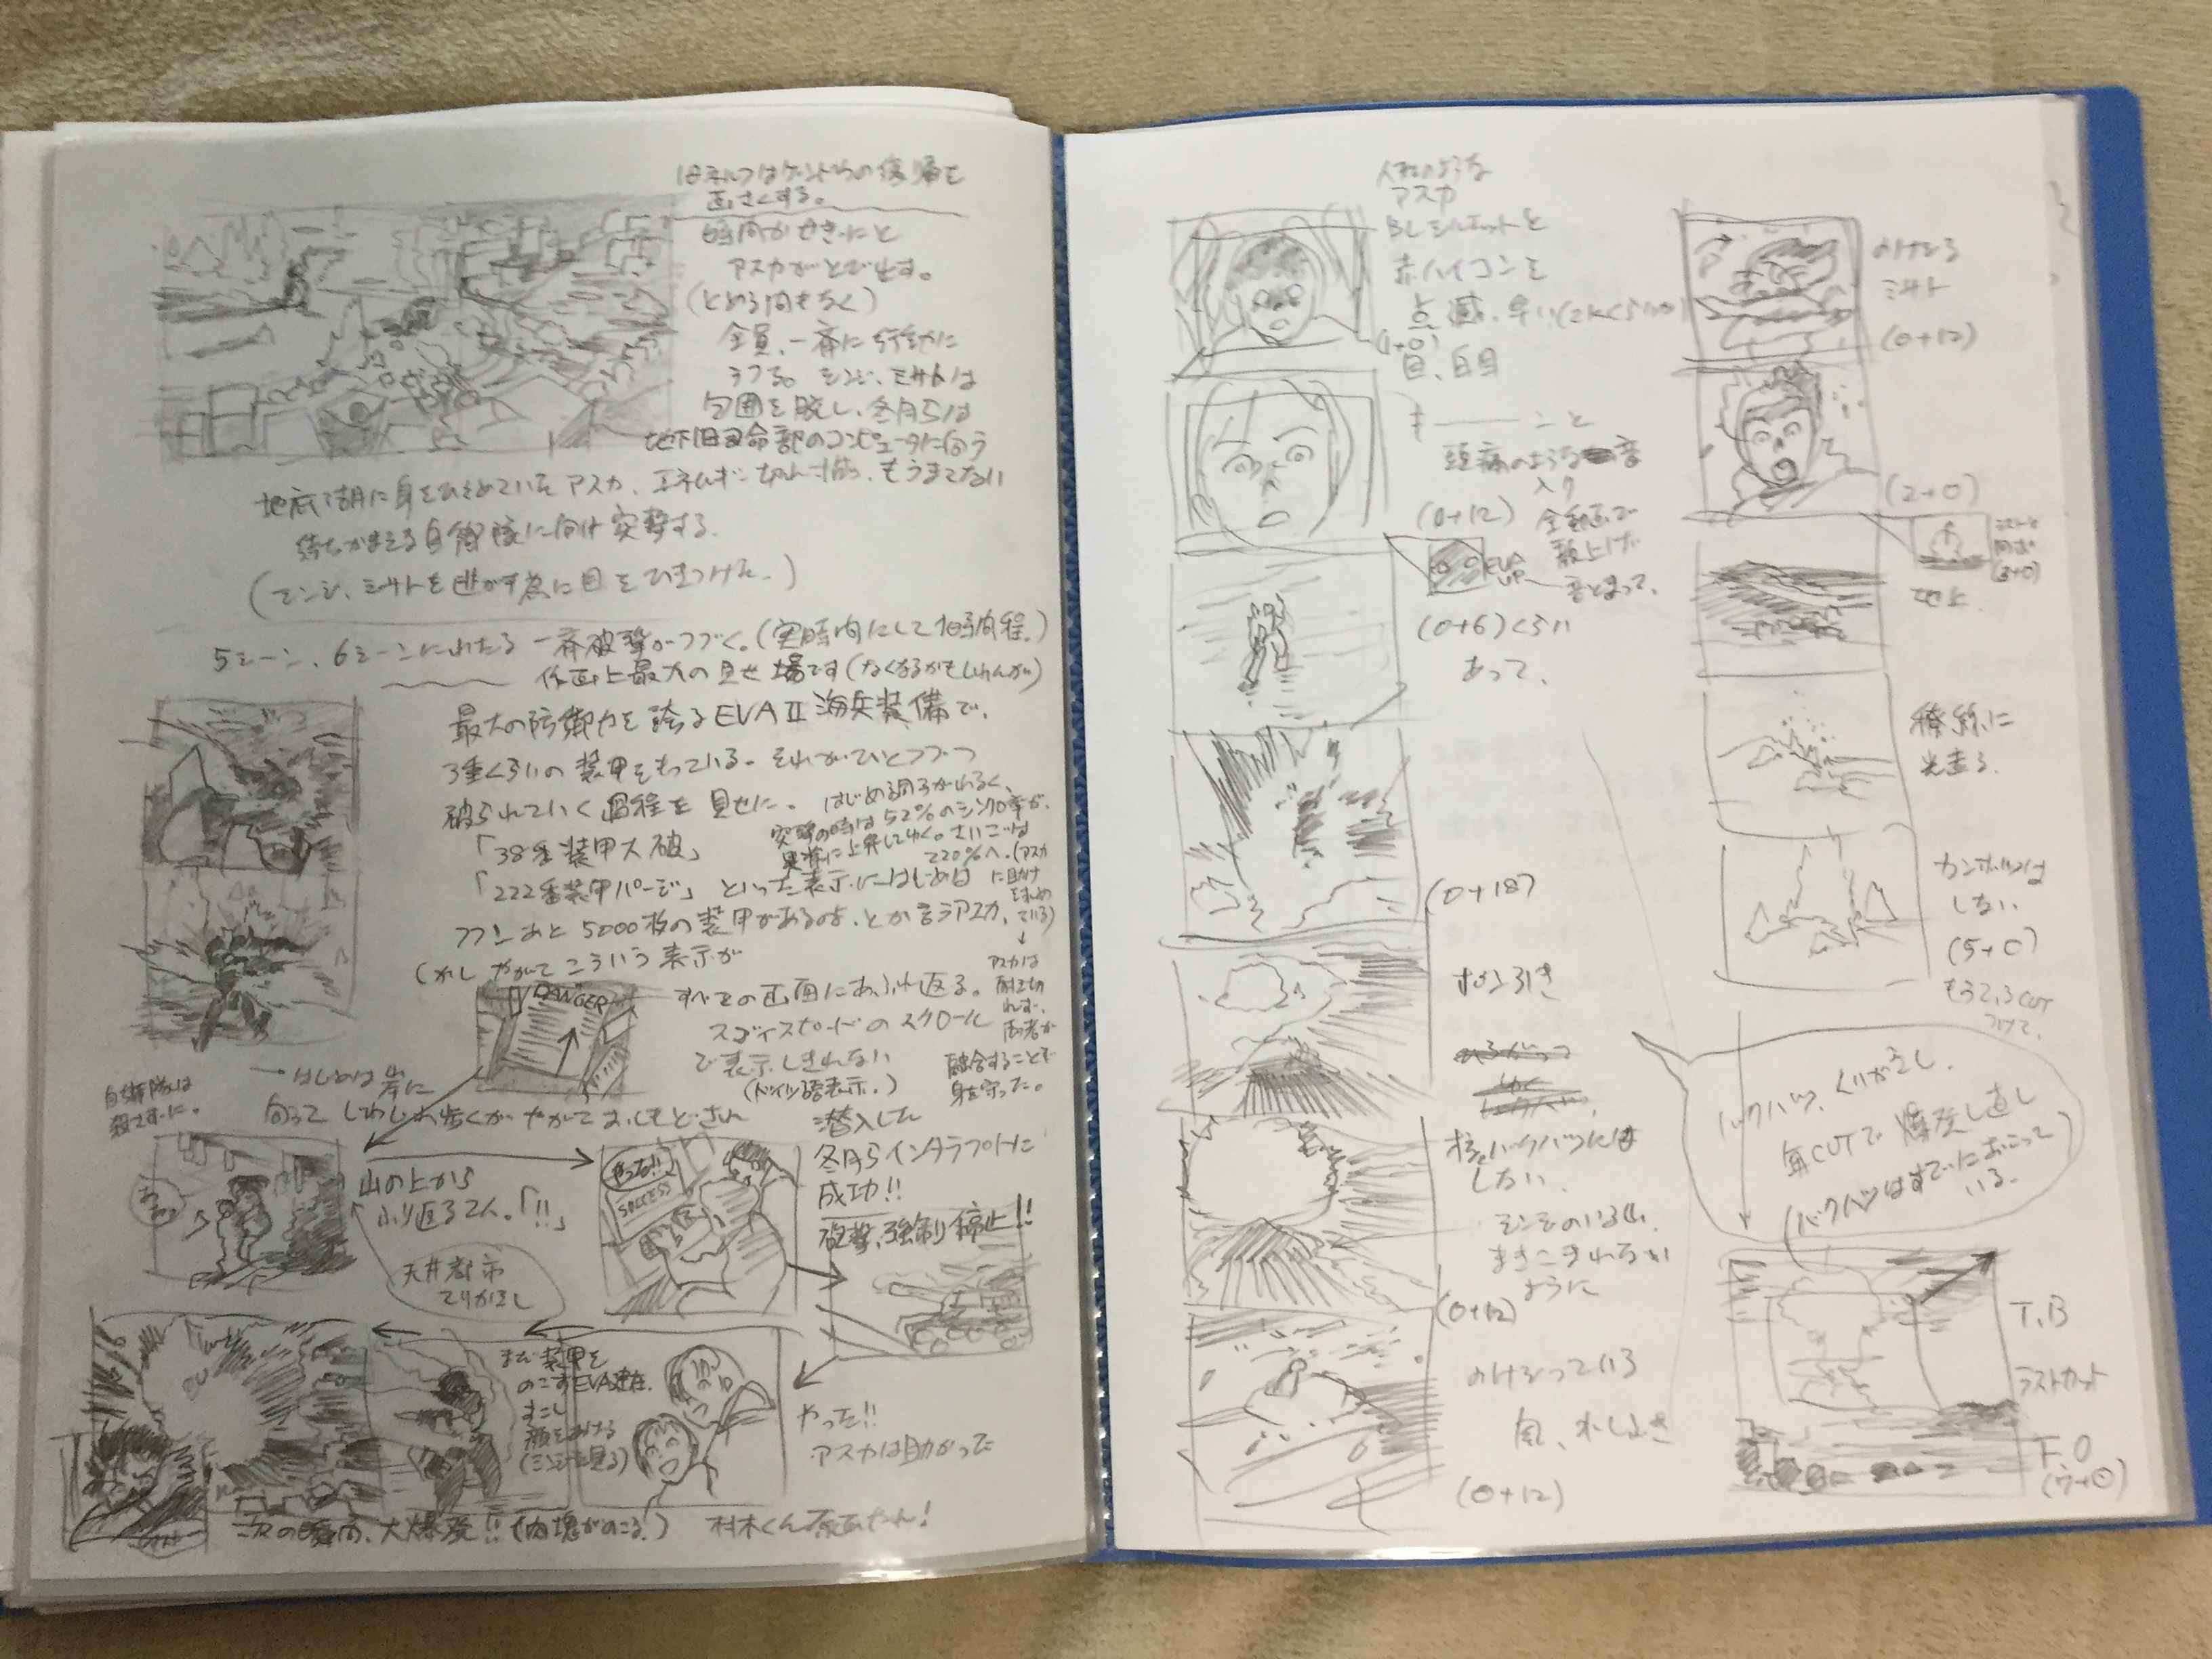 旧ネルフはゲンドウの復帰を
画さくする。
時間かせぎにと
アスカがとび出す。
(とめる間もなく)
全員、一斉に行動に
うつる。シンジ、ミサトは
包囲を脱し、冬月らは
地下旧司令部のコンピュータに向う
地底湖に身をひそめていたアスカ、エネルギー切れ寸前、もうまてない
待ちかまえる自衛隊に向け突撃する。
(シンジ、ミサトを逃がす為に目をひきつけた。)
5シーン、6シーンにわたる一斉破撃がつづく。(実時間にして1時間程)
作画上最大の見せ場です(なくなるかもしれんが)
最大の防御力を誇るEVAⅡ海兵装備で、
3重くらいの装甲をもっている。それがひとつづつ
破られていく過程を見せに。
はじめ調子がわるく、
突撃の時は52%のシンクロ率が、
異常に上昇してゆく。さいごは
220%へ。(アスカ
に助け
を求め
ている)
↓
アスカは
耐え切
れず、
両者が
融合することで
身を守った。
「38番装甲大破」
「222番装甲パージ」といった表示にはじめは
フフンあと5000枚の装甲があるのよ、とか言うアスカ、
しかしやがてこういう表示が
DANGER
すべての画面にあふれ返る。
スゴイスピードのスクロール
で表示しきれない
(ドイツ語表示.)
自衛隊は
殺さずに。
はじめは岸に
向ってじわじわ歩くがやがておしもどされ
山の上から
ふり返る2人。「!!」
天井都市
てりかえし
やった!!
SUCCESS
潜入した
冬月らインタラプトに
成功!!
砲撃、強制停止!!
まだ装甲を
のこすEVA健在.
すこし
顔をあげる
(シンジを見る)
やった!!
アスカは助かった
次の瞬間、大爆発!!(肉塊がのこる)
村木くん原画たのん!
人形のような
アスカ
BLシルエットと
赤ハイコンを
点滅、早い(2Kくらいの)
(1+0)
目、白目
キ――ンと
頭痛のような音
入り
(0+12)
全動画で
顔上げ
音とまって、
EVA
UP
(0+6)くらい
あって、
(0+18)
ポン引き
核バクハツには
しない
シンジのいる山、
まきこまれない
ように
(0+12)
のけぞっている
(0+12)
のけぞる
ミサト
(0+12)
(2+0)
(3+0)
地上
稜線に
光走る
カンボツは
しない
(5+0)
もう2,3CUT
つけて、
バクハツ、くりかえし、
毎CUTで爆発し直し
(バクハツはすでにおこって
いる。
T.B
ラストカット
F.O